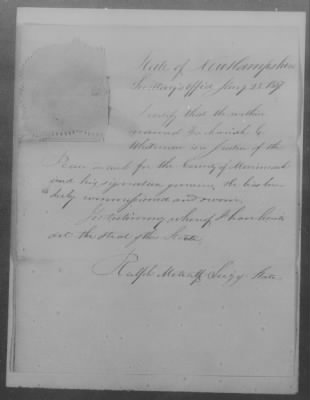 State of New Hampshire
Secretary's Office Jany 25. 18
I certify that the within
named
is a Justice of the
Peace in and for the County of Merrimack
and his signature genuine, he has been
duly commissioned and sworn.
In testimony whereof I have hereto
set the Seal of the State.
Ralph Metcalf Secy of State